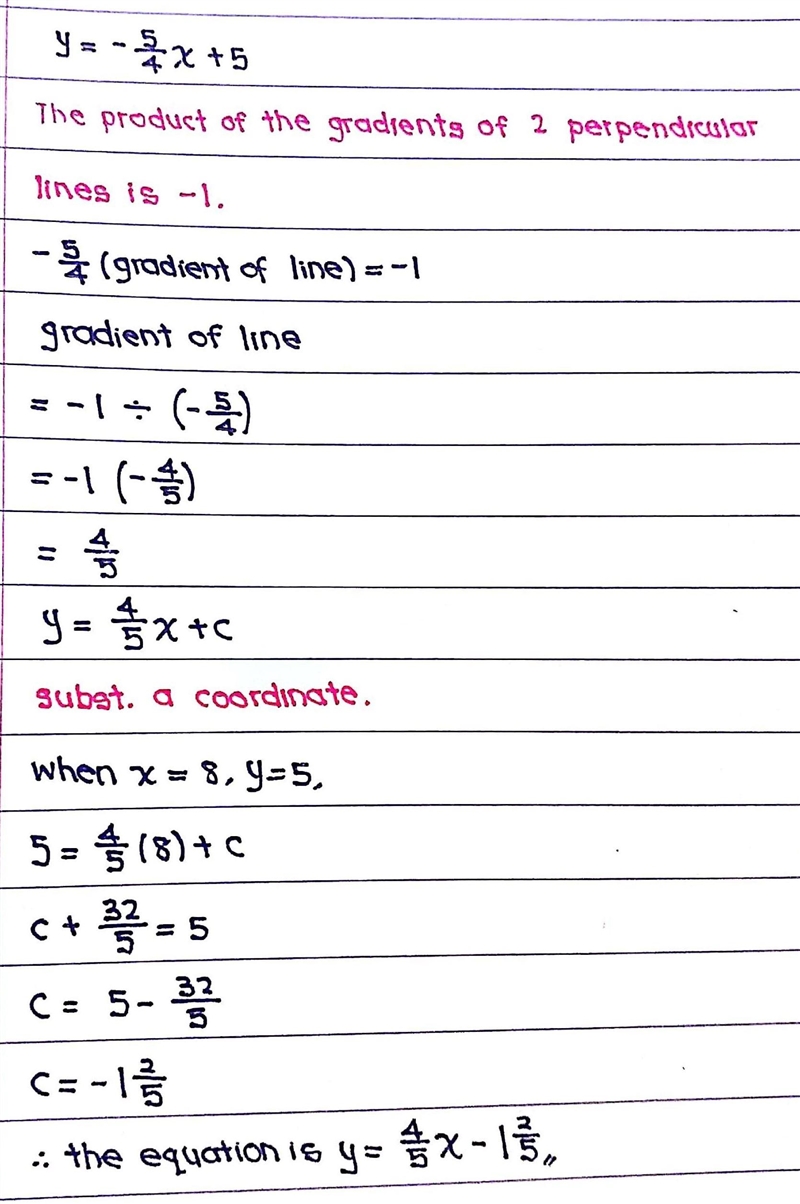 y = -5/4 x + 5
The product of the gradients of 2 perpendicular
lines is -1.
-5/4 (gradient of line) = -1
gradient of line
= -1 ÷ (-5/4)
= -1 (-4/5)
= 4/5
y = 4/5 x + c
subst. a coordinate.
when x = 8, y=5,
5 = 4/5 (8) + c
c + 32/5 = 5
c = 5 - 32/5
c = -1 2/5
∴ the equation is y = 4/5 x - 1 2/5 ,,